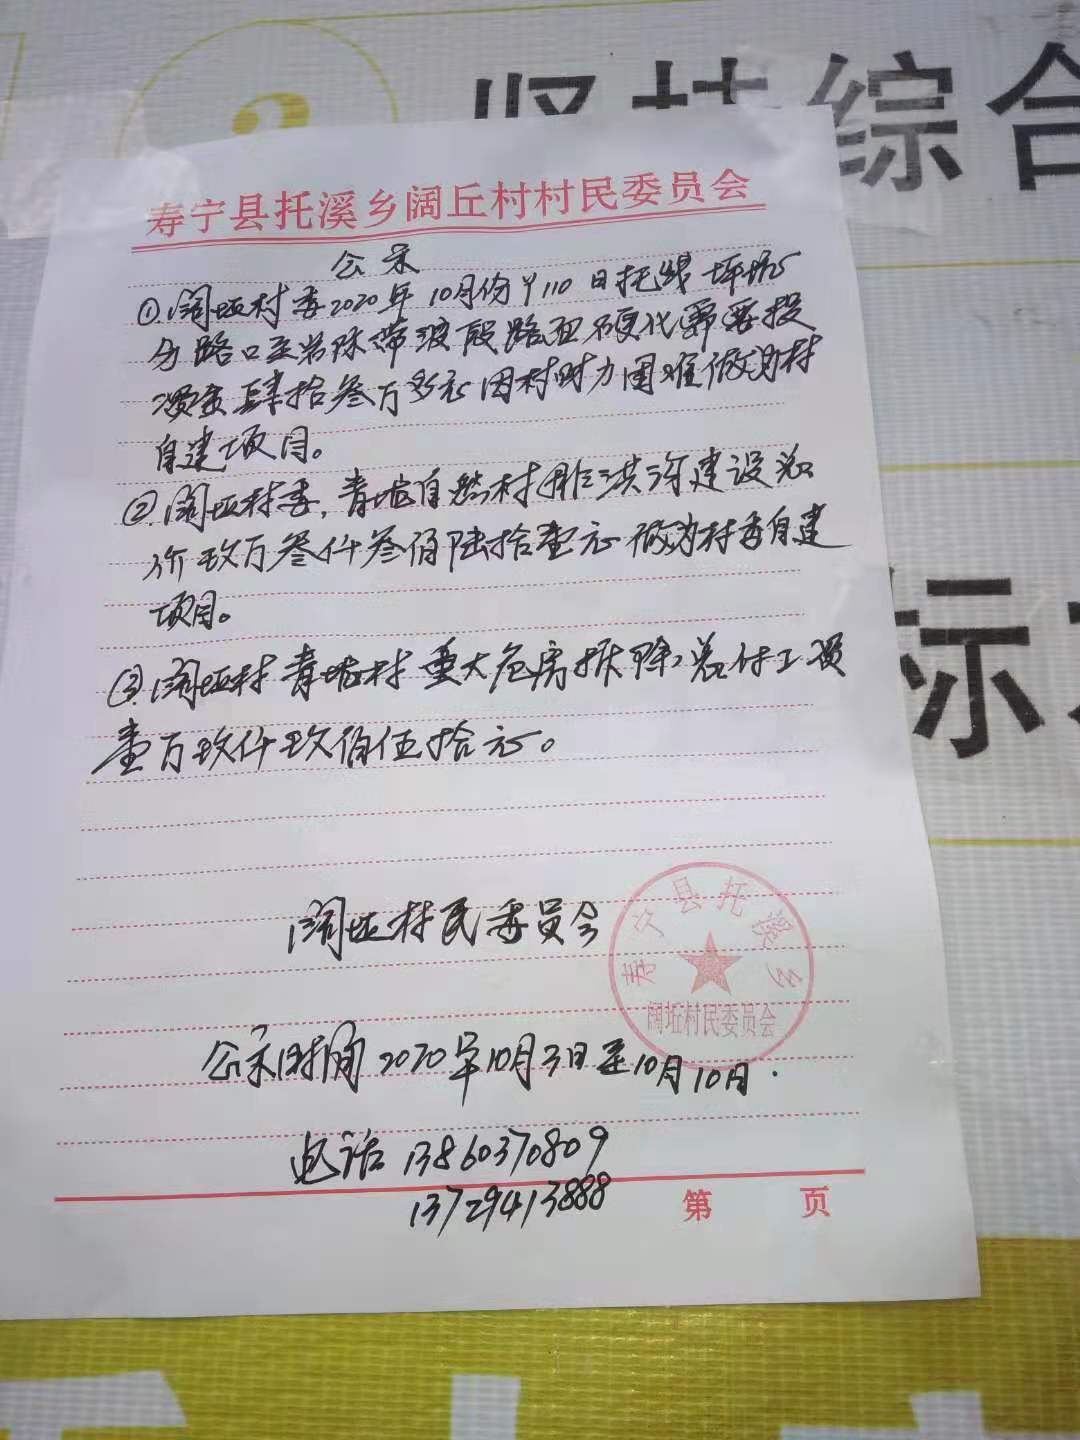 综合
寿宁县托溪乡阔丘村村民委员会
公示
①.阔坵村委2020年10月份
分路口至 路面硬化需要投
资金肆拾叁万多元因村财力困难做为村
自建项目。
②.阔坵村委，青 自然村排洪沟建设总
价玖万叁仟叁佰陆拾壹元做为村委自建
项目。
③.阔坵村青 村重大危房拆除，总付工资
壹万玖仟玖佰伍拾元。
标
阔坵村民委员会
寿宁县托溪乡
阔坵村民委员会
公示时间2020年10月3日至10月10日.
电话 13860370809
13729413888
第 页